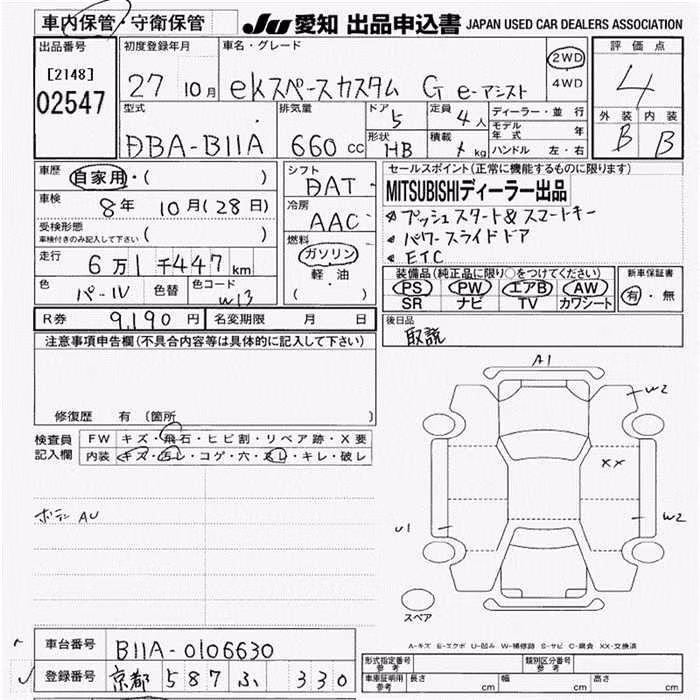 車内保管・守衛保管
JU 愛知 出品申込書 JAPAN USED CAR DEALERS ASSOCIATION
出品番号
[2148]
02547
初度登録年月
27 10月
車名・グレード
ekスペースカスタム G e-アシスト
2WD
4WD
評価点
4
外装 内装
B B
型式
DBA-B11A
排気量
660 cc
ドア
5
形状
HB
定員
4人
積載
kg
ディーラー・並行
モデル年式 年
ハンドル 左・右
車歴
自家用・( )
車検
8年 10月(28日)
受検形態
車検付きのみ記入して下さい ( )
走行
6万1千447km
色
パール
色替
色コード
W13
シフト
DAT
冷房
AAC
燃料
ガソリン
軽・油
( )
セールスポイント(正常に機能するものに限ります)
MITSUBISHIディーラー出品
プッシュスタート&スマートキー
パワースライドドア
ETC
装備品(純正品に限り○をつけてください)
PS PW エアB AW
SR ナビ TV カワシート
新車保証書
有・無
R券 9,190円
名変期限 月 日
後日品
取説
注意事項申告欄(不具合内容等は具体的に記入して下さい)
修復歴 有 〔箇所 〕
検査員
記入欄
FW キズ・飛石・ヒビ割・リペア跡・X要
内装 キズ・汚レ・コゲ・穴・スレ・キレ・破レ
ボデー AU
A1
W2
XX
U1
W2
スペア
A-キズ E-エクボ U-凹み W-補修跡 S-サビ C-腐食 XX-交換済
車台番号 B11A-0106630
登録番号 京都 587 ふ 330
形式指定番号
参考
類別区分番号
参考
車庫証明用
参考
長さ cm 幅 cm 高さ cm